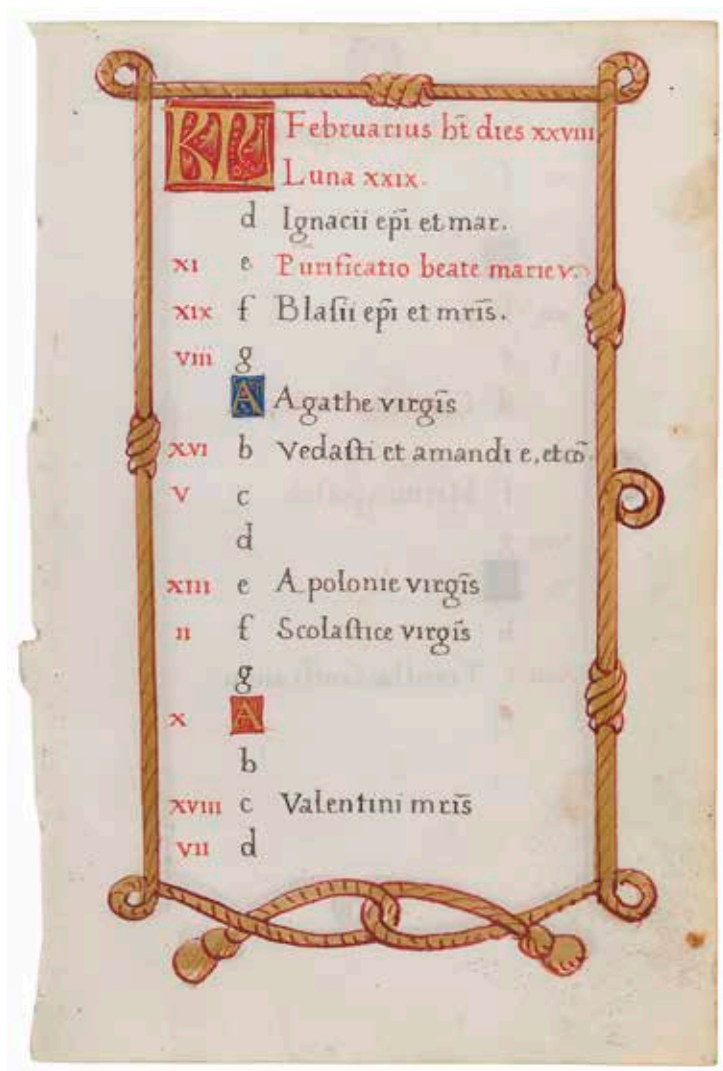 KL Februarius ht̄ dies xxviii
Luna xxix.
d Ignacii ep̄i et mar.
xi e Purificatio beate marie v.
xix f Blasii ep̄i et mr̄is.
viii g
A Agathe virgīs
xvi b Vedasti et amandi e, et co᷒̄.
v c
d
xiii e Apolonie virgīs
ii f Scolastice virgīs
g
x A
b
xviii c Valentini mr̄is
vii d